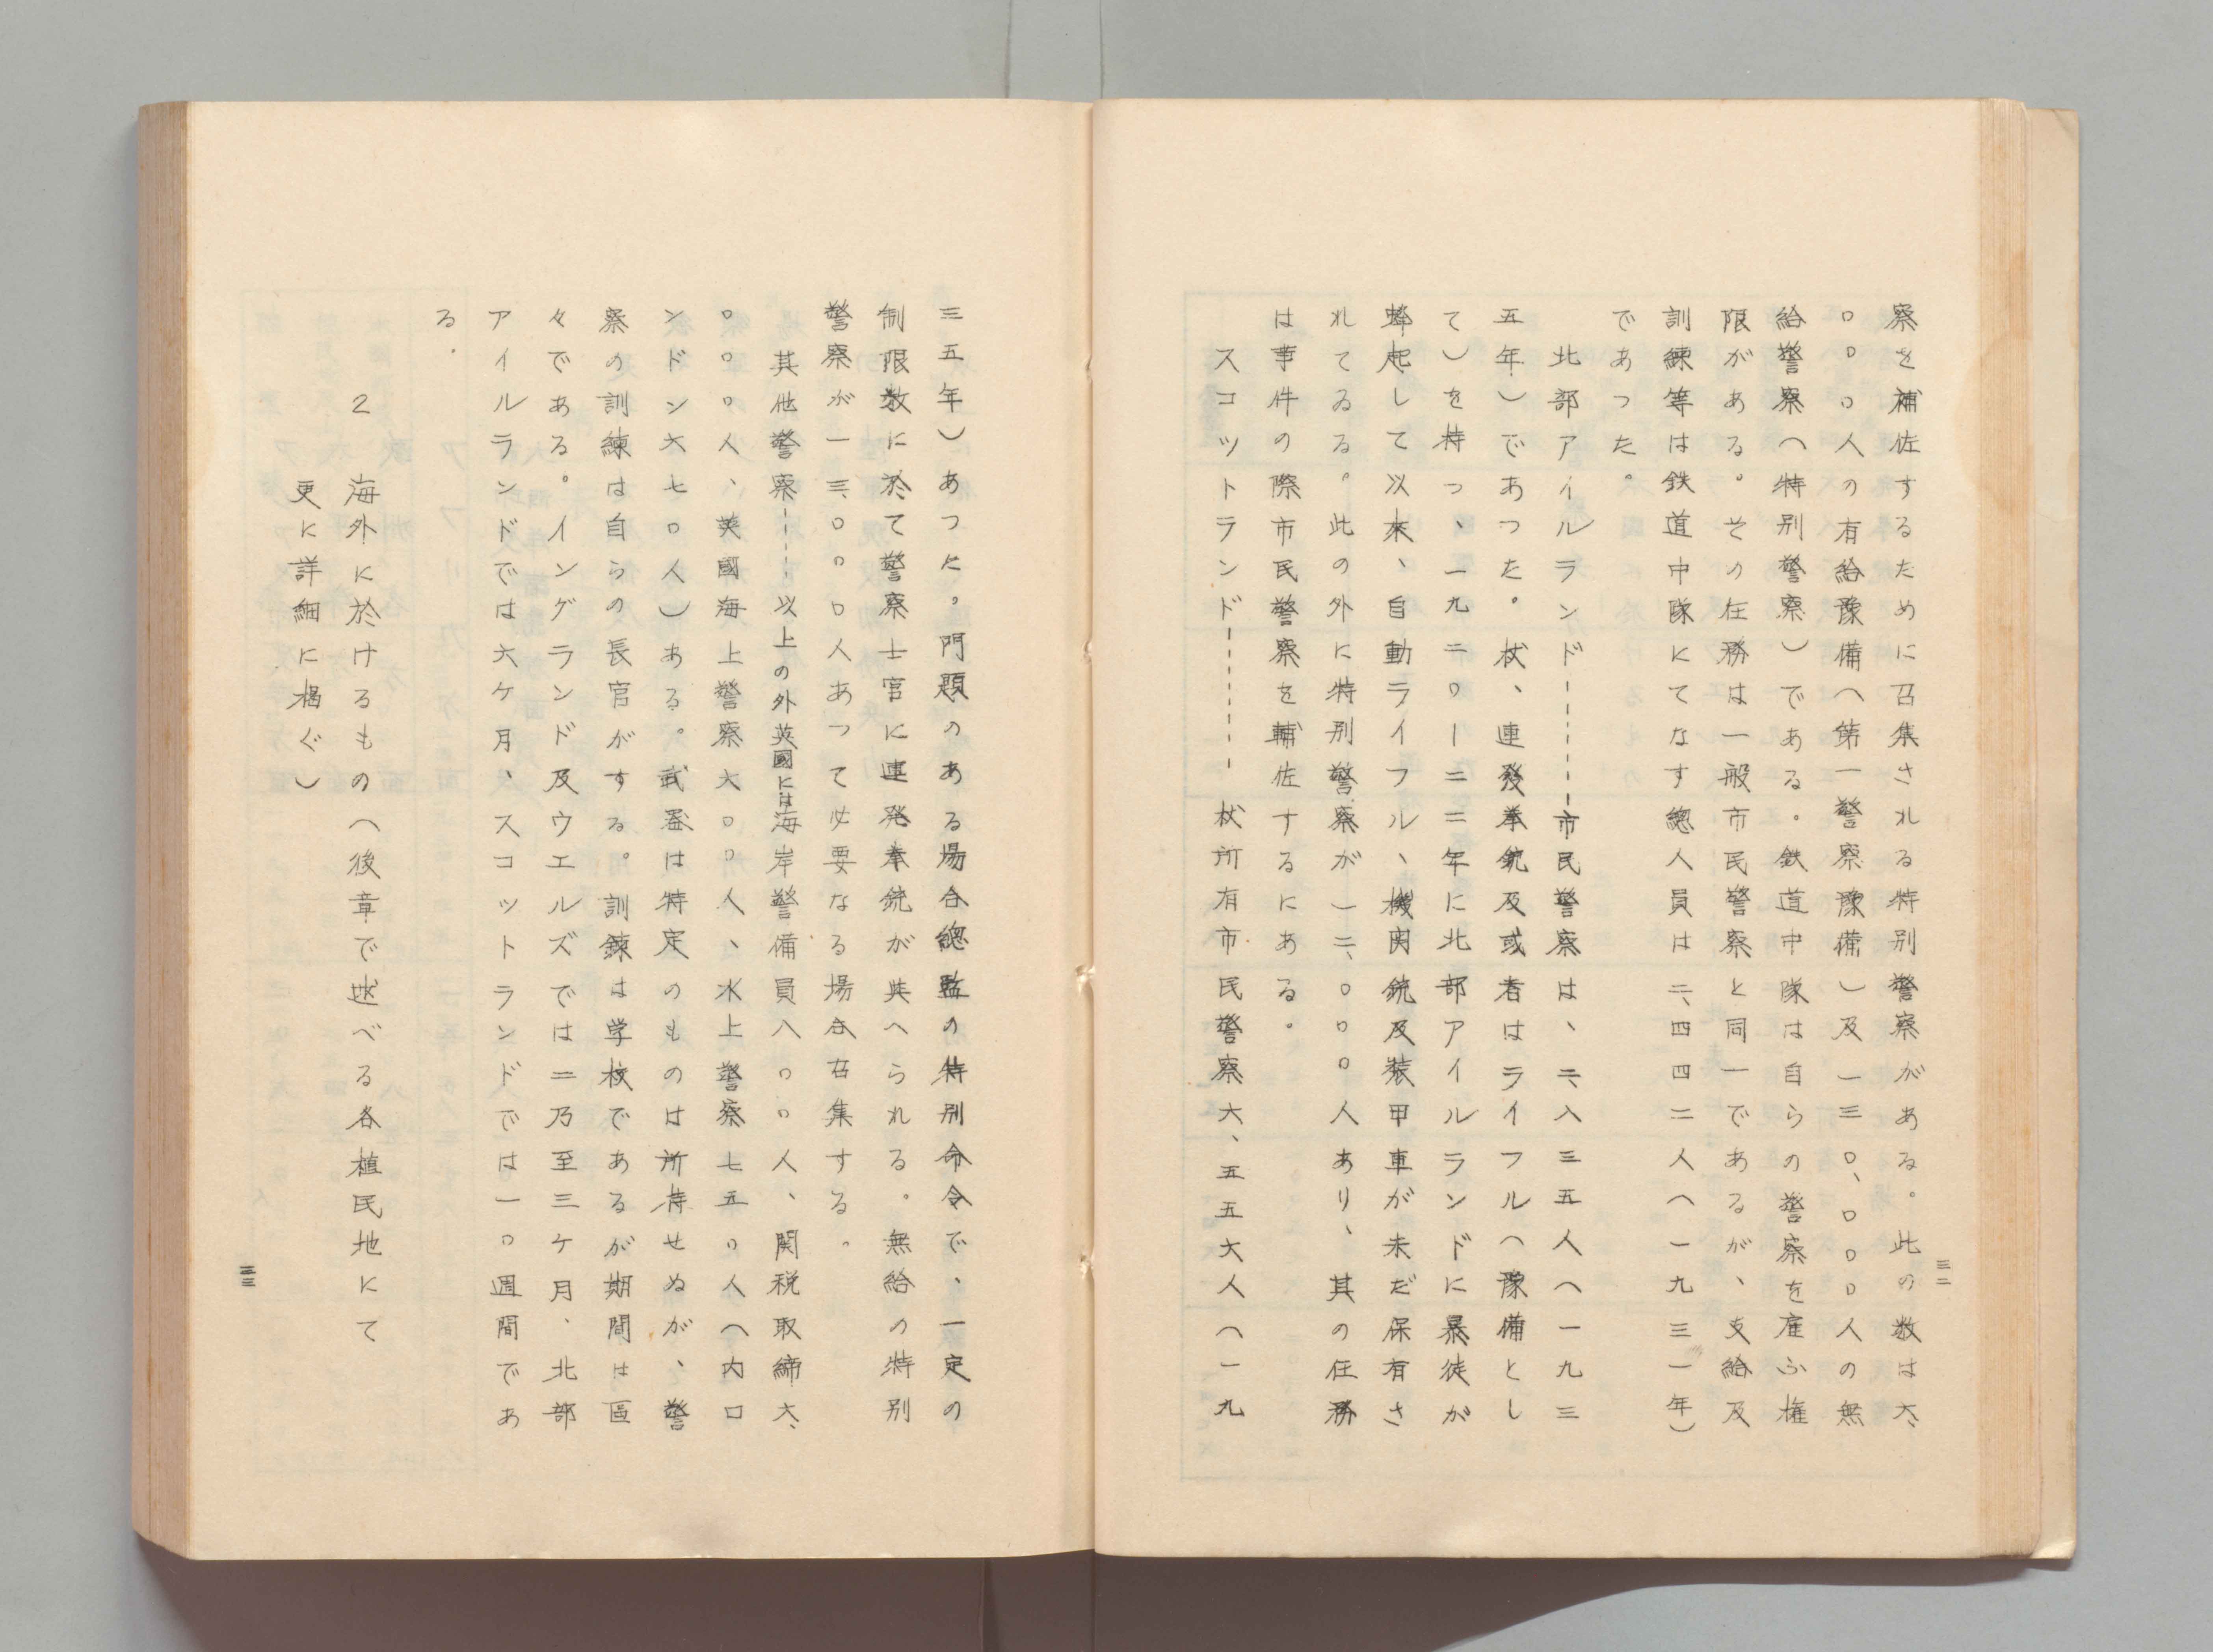 察を補佐するために召集される特別警察がある。此の数は六、
〇〇〇人の有給豫備(第一警察豫備)及一三〇、〇〇〇人の無
給警察(特別警察)である。鉄道中隊は自らの警察を雇ふ権
限がある。その任務は一般市民警察と同一であるが、支給及
訓練等は鉄道中隊にてなす總人員は二、四四二人(一九三一年)
であった。
北部アイルランド----------市民警察は、二、八三五人(一九三
五年)であつた。杖、連發拳銃及或者はライフル(豫備とし
て)を持つ、一九二〇ー二二年に北部アイルランドに暴徒が
蜂起して以来、自動ライフル、機関銃及装甲車が未だ保有さ
れてゐる。此の外に特別警察が一二、〇〇〇人あり、其の任務
は事件の際市民警察を輔佐するにある。
スコットランド----------杖所有市民警察六、五五六人(一九
三二
三五年)あつた。門題のある場合總監の特別命令で、一定の
制限数に於て警察士官に連発拳銃が與へられる。無給の特別
警察が一三、〇〇〇人あって必要なる場合召集する。
其他警察-----以上の外英國には海岸警備員八〇〇人、関税取締六、
〇〇〇人、英國海上警察六〇〇人、水上警察七五〇人(内ロ
ンドン六七〇人)ある。武器は特定のものは所持せぬが、警
察の訓練は自らの長官がする。訓練は学校であるが期間は區
々である。イングランド及ウエルズでは二乃至三ケ月、北部
アイルランドでは六ケ月、スコットランドでは一〇週間であ
る.
2 海外に於けるもの(後章で述べる各植民地にて
更に詳細に掲ぐ)
三三